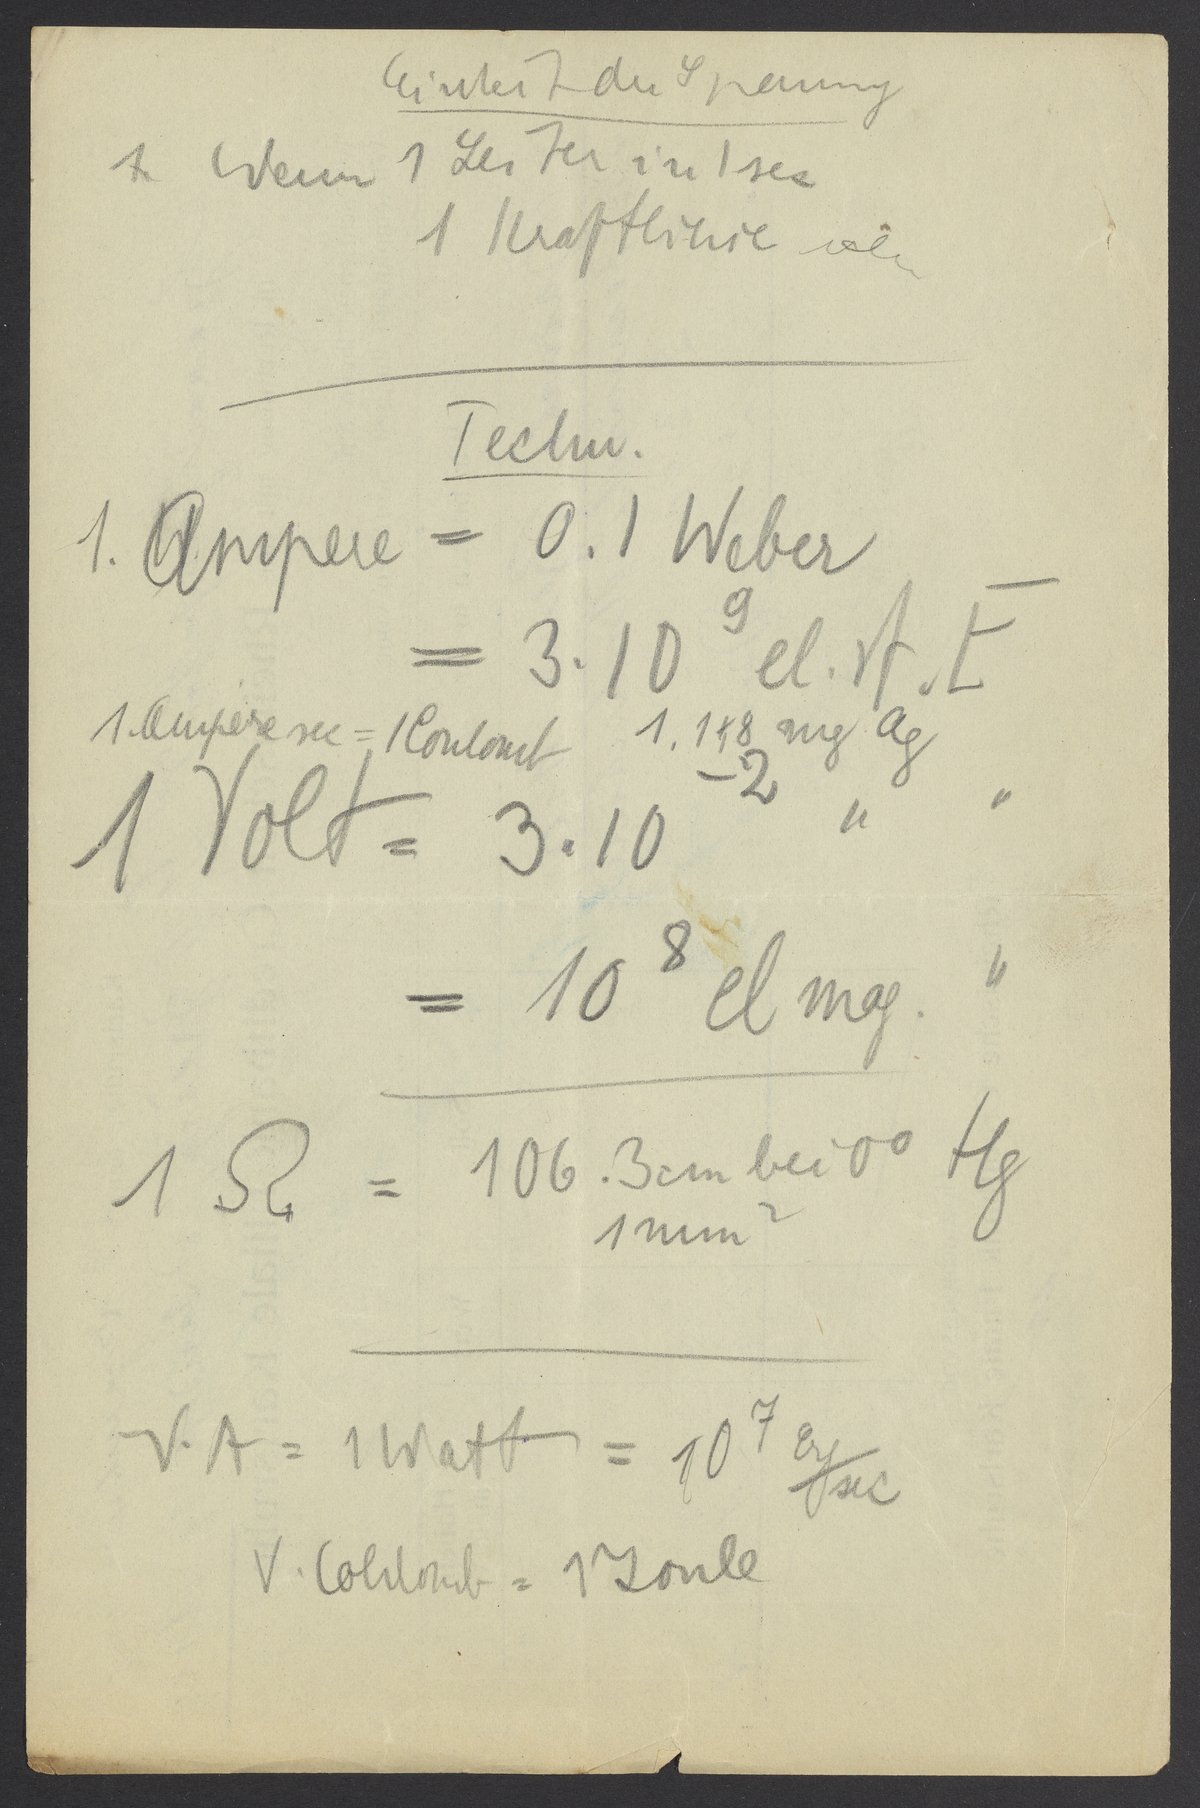 Einheit der Spannung
1. Wenn 1 Leiter in 1 sec
1 Kraftlinie
Techn.
1. Ampere = 0.1 Weber
= 3.10⁹ el. st. E
1. Ampère sec = 1 Coulomb 1.118 mg Ag
1 Volt = 3.10⁻² " "
= 10⁸ el mag. "
1 Ω = 106.3cm bei 0° Hg
1 mm²
V.A = 1 Watt = 10⁷ Erg/sec
V. Coulomb = 1 Joule